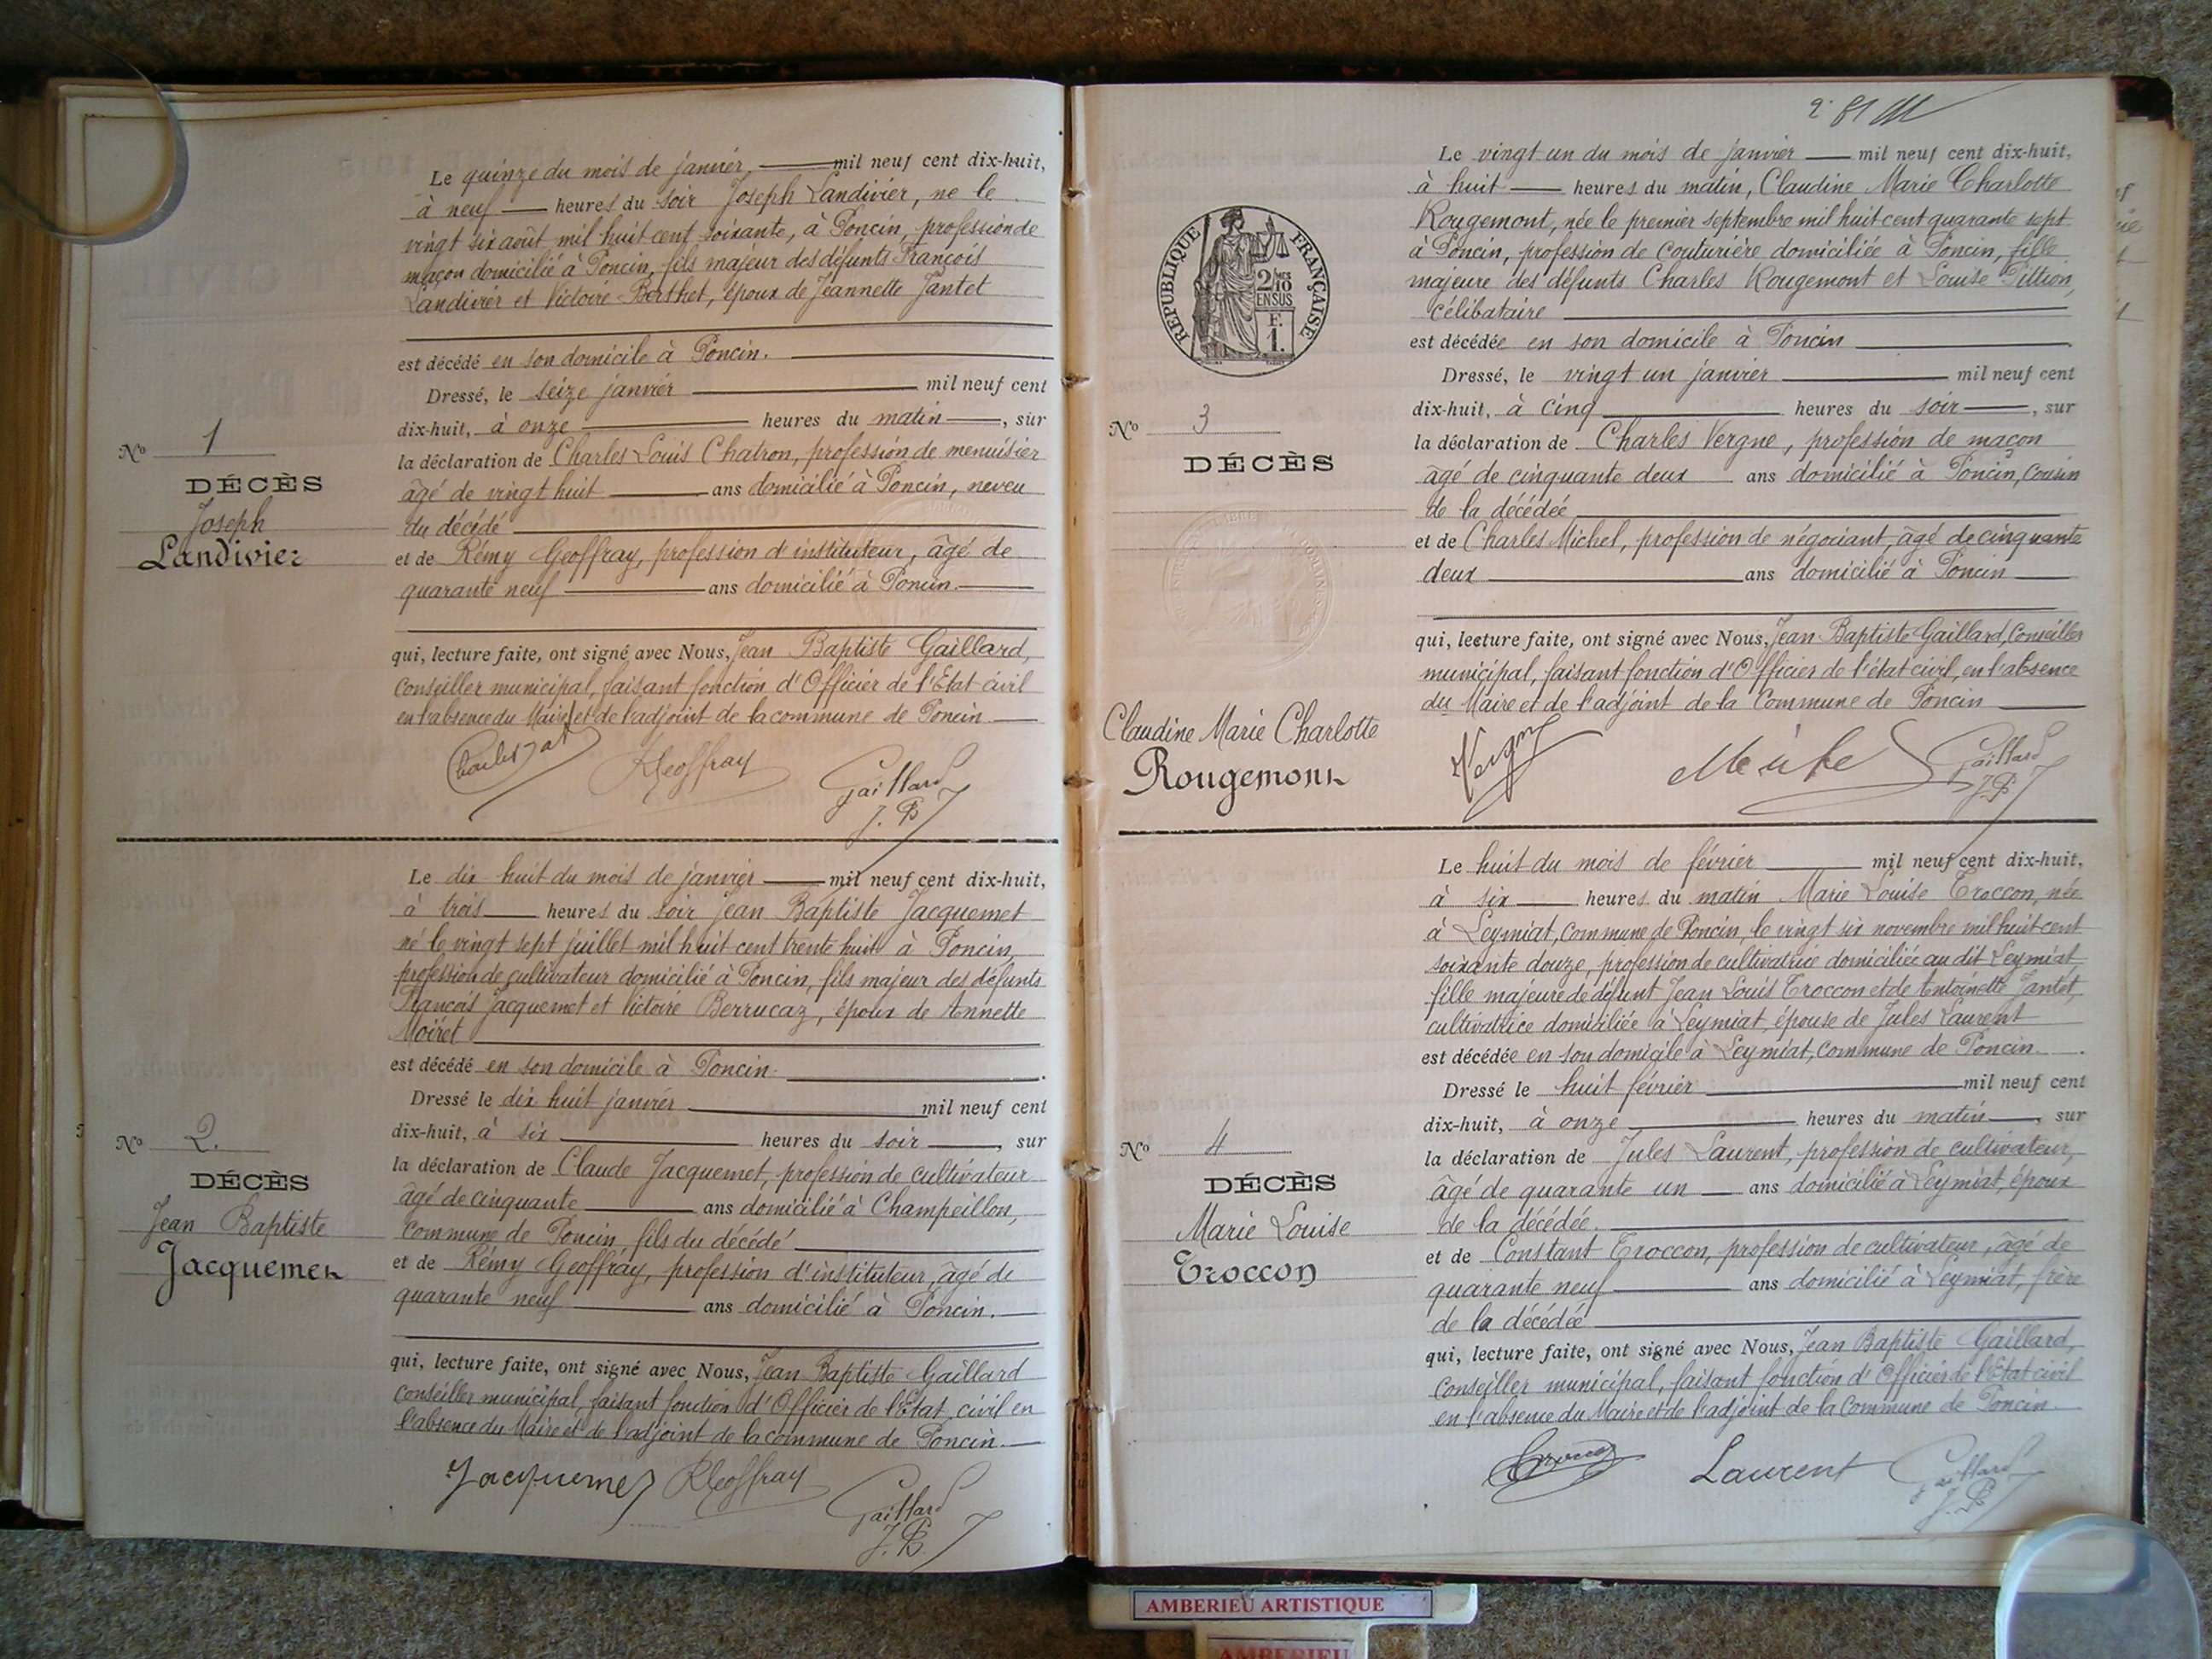 Le quinze du mois de janvier, mil neuf cent dix-huit,
à neuf heures du soir Joseph Landivier, ne le
vingt six août mil huit cent soixante, à Poncin, profession de
maçon domicilié à Poncin, fils majeur des défunts François
Landivier et Victoire Berthet, époux de Jeannette Jantet
est décédé en son domicile à Poncin.
Dressé, le seize janvier mil neuf cent
dix-huit, à onze heures du matin, sur
la déclaration de Charles Louis Chatron, profession de menuisier
âgé de vingt huit ans domicilié à Poncin, neveu
du décédé
et de Rémy Geoffray, profession d'instituteur, âgé de
quarante neuf ans domicilié à Poncin.
qui, lecture faite, ont signé avec Nous, Jean Baptiste Gaillard,
Conseiller municipal, faisant fonction d'Officier de l'Etat civil
en l'absence du Maire et de l'adjoint de la commune de Poncin.
RGeoffray
Gaillard
J. B
No 1
DÉCÈS
Joseph
Landivier
Le dix huit du mois de janvier mil neuf cent dix-huit,
à trois heures du soir Jean Baptiste Jacquemet
né le vingt sept juillet mil huit cent trente huit à Poncin,
profession de cultivateur domicilié à Poncin, fils majeur des défunts
François Jacquemet et Victoire Berrucaz, époux de Annette
Moiret
est décédé en son domicile à Poncin.
Dressé le dix huit janvier mil neuf cent
dix-huit, à six heures du soir, sur
la déclaration de Claude Jacquemet, profession de cultivateur
âgé de cinquante ans domicilié à Champeillon,
commune de Poncin, fils du décédé
et de Rémy Geoffray, profession d'instituteur, âgé de
quarante neuf ans domicilié à Poncin.
qui, lecture faite, ont signé avec Nous, Jean Baptiste Gaillard
Conseiller municipal, faisant fonction d'Officier de l'Etat civil en
l'absence du Maire et de l'adjoint de la commune de Poncin.
Jacquemet RGeoffray
Gaillard
J. B.
No 2.
DÉCÈS
Jean Baptiste
Jacquemet
Le vingt un du mois de janvier mil neuf cent dix-huit,
à huit heures du matin, Claudine Marie Charlotte
Rougemont, née le premier septembre mil huit cent quarante sept
à Poncin, profession de couturière domiciliée à Poncin, fille
majeure des défunts Charles Rougemont et Louise Tittion,
célibataire
est décédée en son domicile à Poncin
Dressé, le vingt un janvier mil neuf cent
dix-huit, à cinq heures du soir, sur
la déclaration de Charles Vergne, profession de maçon
âgé de cinquante deux ans domicilié à Poncin, Cousin
de la décédée
et de Charles Michel, profession de négociant, âgé de cinquante
deux ans domicilié à Poncin
qui, lecture faite, ont signé avec Nous, Jean Baptiste Gaillard, Conseiller
municipal, faisant fonction d'Officier de l'état civil, en l'absence
du Maire et de l'adjoint de la Commune de Poncin
Vergne
Gaillard
J. B
RÉPUBLIQUE FRANÇAISE
2/10
EN SUS
F.
1.
No 3
DÉCÈS
Claudine Marie Charlotte
Rougemont
Le huit du mois de février mil neuf cent dix-huit,
à six heures du matin Marie Louise Troccon, née
à Leymiat, Commune de Poncin, le vingt six novembre mil huit cent
soixante douze, profession de cultivatrice domiciliée au dit Leymiat
fille majeure de défunt Jean Louis Troccon et de Antoinette Jantet,
cultivatrice domiciliée à Leymiat, épouse de Jules Laurent
est décédée en son domicile à Leymiat, Commune de Poncin.
Dressé le huit février mil neuf cent
dix-huit, à onze heures du matin, sur
la déclaration de Jules Laurent, profession de cultivateur,
âgé de quarante un ans domicilié à Leymiat, époux
de la décédée.
et de Constant Troccon, profession de cultivateur, âgé de
quarante neuf ans domicilié à Leymiat, frère
de la décédée
qui, lecture faite, ont signé avec Nous, Jean Baptiste Gaillard,
Conseiller municipal, faisant fonction d'Officier de l'Etat civil
en l'absence du Maire et de l'adjoint de la Commune de Poncin
Troccon Laurent Gaillard
J. B
No 4
DÉCÈS
Marie Louise
Troccon
AMBERIEU ARTISTIQUE
AMBERIEU